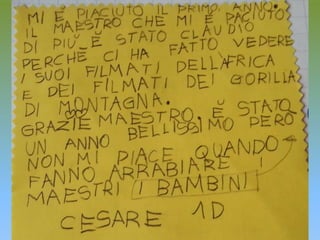 MI È PIACIUTO IL PRIMO ANNO.
IL MAESTRO CHE MI È PACIUTO
DI PIÙ È STATO CLAUDIO
PERCHÈ CI HA FATTO VEDERE
I SUOI FILMATI DELL'AFRICA
E DEI FILMATI DEI GORILLA
DI MONTAGNA.
GRAZIE MAESTRO, È STATO
UN ANNO BELLISSIMO PERÒ
NON MI PIACE QUANDO
FANNO ARRABIARE I
MAESTRI I BAMBINI
CESARE 1D